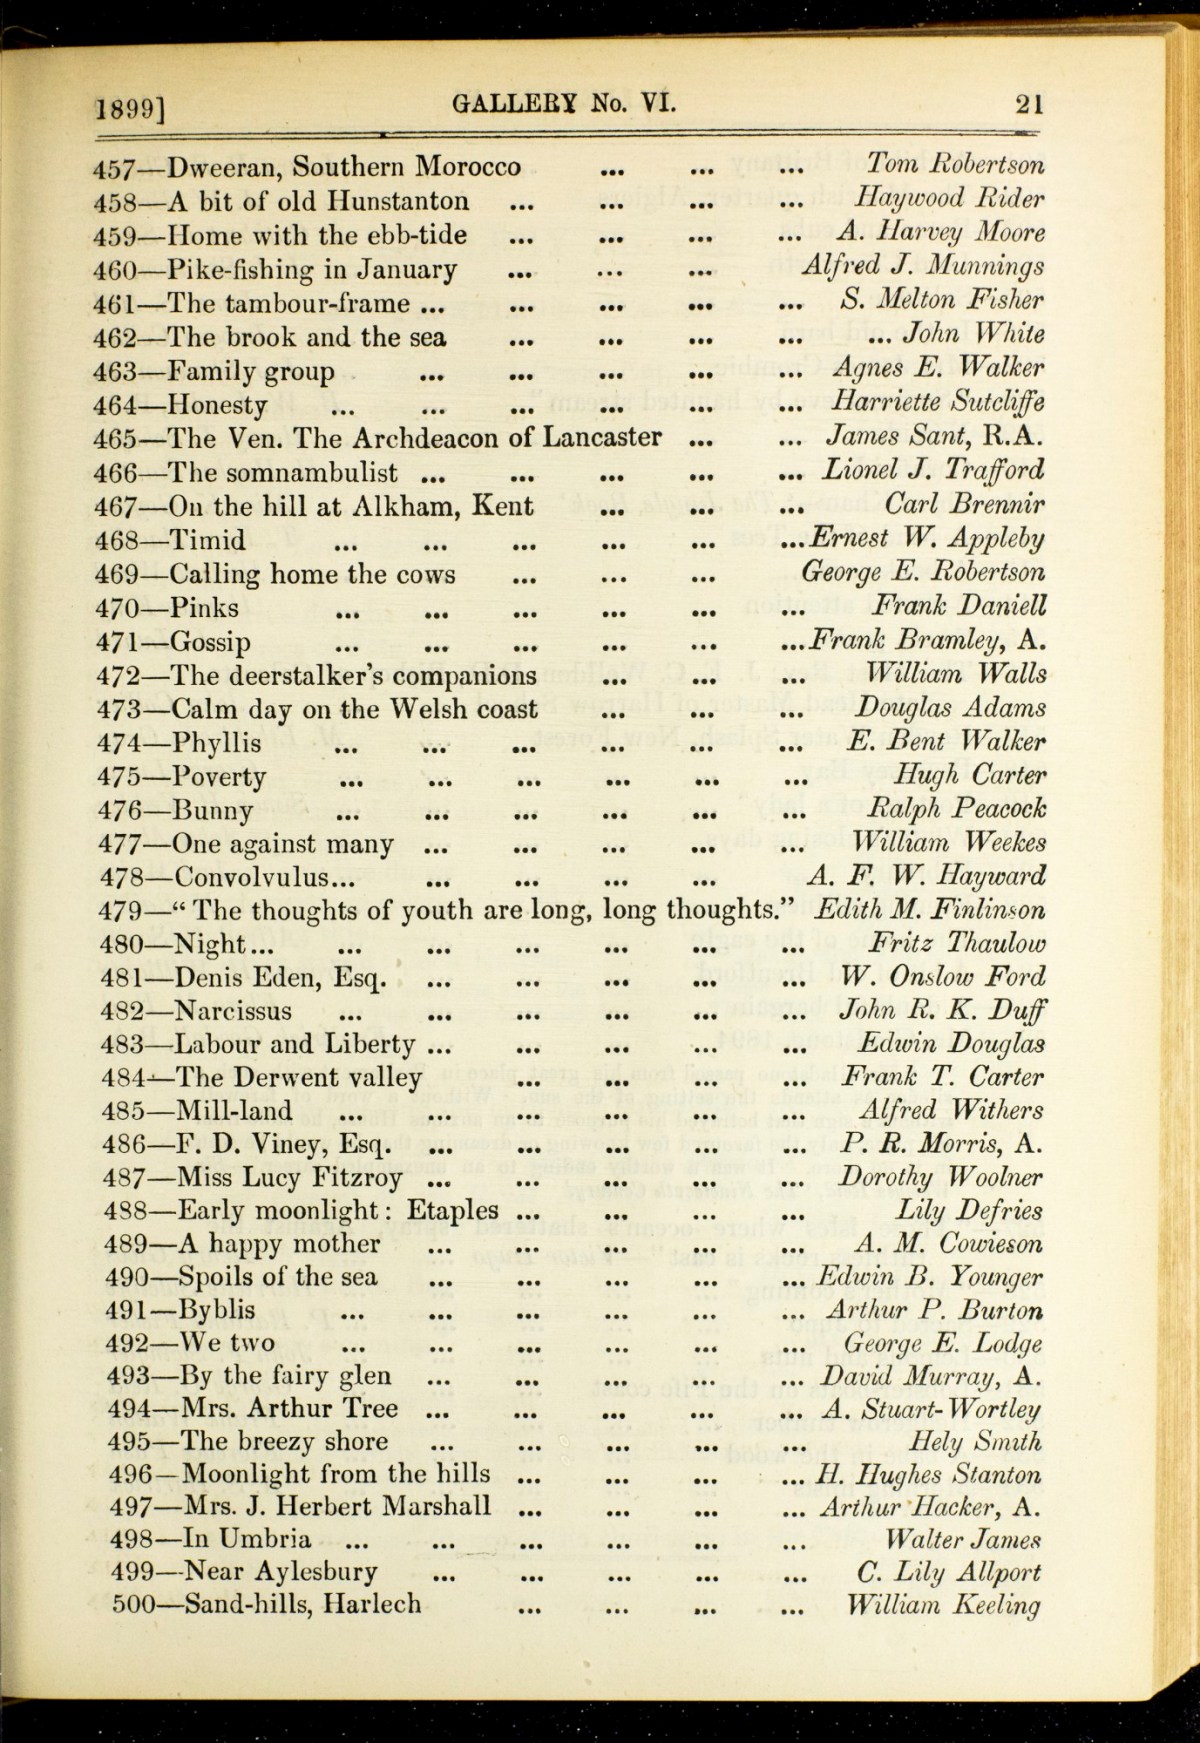 1899] GALLERY No. VI. 21
457—Dweeran, Southern Morocco ... ... ... Tom Robertson
458—A bit of old Hunstanton ... ... ... ... Haywood Rider
459—Home with the ebb-tide ... ... ... ... A. Harvey Moore
460—Pike-fishing in January ... ... ... Alfred J. Munnings
461—The tambour-frame ... ... ... ... ... S. Melton Fisher
462—The brook and the sea ... ... ... ... ... John White
463—Family group ... ... ... ... ... Agnes E. Walker
464—Honesty ... ... ... ... ... ... Harriette Sutcliffe
465—The Ven. The Archdeacon of Lancaster ... ... James Sant, R.A.
466—The somnambulist ... ... ... ... ... Lionel J. Trafford
467—On the hill at Alkham, Kent ... ... ... Carl Brennir
468—Timid ... ... ... ... ... ...Ernest W. Appleby
469—Calling home the cows ... ... ... George E. Robertson
470—Pinks ... ... ... ... ... ... Frank Daniell
471—Gossip ... ... ... ... ... ...Frank Bramley, A.
472—The deerstalker's companions ... ... ... William Walls
473—Calm day on the Welsh coast ... ... ... Douglas Adams
474—Phyllis ... ... ... ... ... ... E. Bent Walker
475—Poverty ... ... ... ... ... ... Hugh Carter
476—Bunny ... ... ... ... ... ... Ralph Peacock
477—One against many ... ... ... ... ... William Weekes
478—Convolvulus... ... ... ... ... A. F. W. Hayward
479—“ The thoughts of youth are long, long thoughts.” Edith M. Finlinson
480—Night... ... ... ... ... ... ... Fritz Thaulow
481—Denis Eden, Esq. ... ... ... ... ... W. Onslow Ford
482—Narcissus ... ... ... ... ... ... John R. K. Duff
483—Labour and Liberty ... ... ... ... ... Edwin Douglas
484—The Derwent valley ... ... ... ... Frank T. Carter
485—Mill-land ... ... ... ... ... ... Alfred Withers
486—F. D. Viney, Esq. ... ... ... ... ... P. R. Morris, A.
487—Miss Lucy Fitzroy ... ... ... ... ... Dorothy Woolner
488—Early moonlight: Etaples ... ... ... ... Lily Defries
489—A happy mother ... ... ... ... ... A. M. Cowieson
490—Spoils of the sea ... ... ... ... ... Edwin B. Younger
491—Byblis ... ... ... ... ... ... Arthur P. Burton
492—We two ... ... ... ... ... ... George E. Lodge
493—By the fairy glen ... ... ... ... ... David Murray, A.
494—Mrs. Arthur Tree ... ... ... ... ... A. Stuart-Wortley
495—The breezy shore ... ... ... ... ... Hely Smith
496—Moonlight from the hills ... ... ... ... H. Hughes Stanton
497—Mrs. J. Herbert Marshall ... ... ... ... Arthur Hacker, A.
498—In Umbria ... ... ... ... ... ... Walter James
499—Near Aylesbury ... ... ... ... ... C. Lily Allport
500—Sand-hills, Harlech ... ... ... ... William Keeling